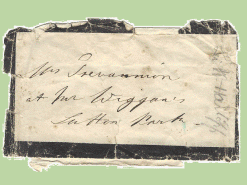 Mrs Trevannion
at Mr Wiggan's
Sutton Park